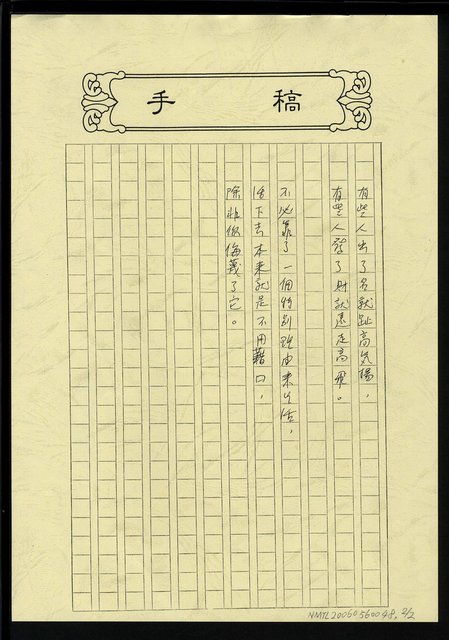 手稿
有些人出了名就趾高氣揚，
有些人發了財就遠走高飛。
不必靠了一個特別理由來生活，
活下去本來就是不用藉口，
除非你侮蔑了它。
NMTL20060560048, 2/2